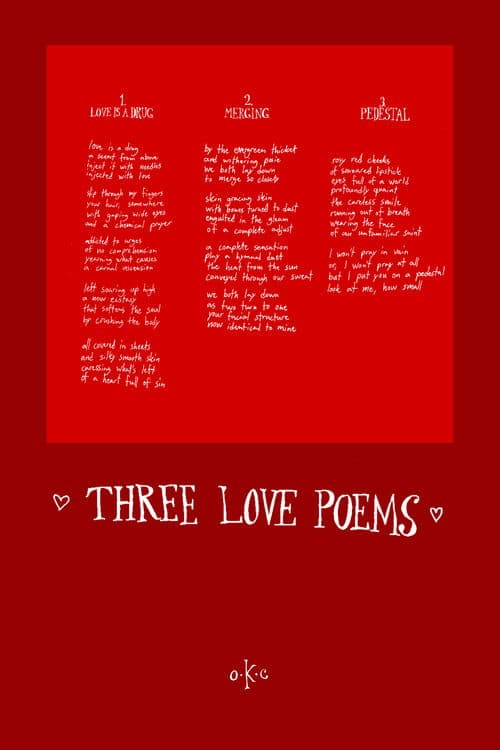 1.
LOVE IS A DRUG
love is a drug
a scent from above
inject it with needles
injected with love
slip through my fingers
your hair, somewhere
with gaping wide eyes
and a chemical prayer
addicted to urges
of no comprehension
yearning what causes
a carnal ascension
left soaring up high
a new ecstasy
that softens the soul
by crushing the body
all covered in sheets
and silky smooth skin
caressing what's left
of a heart full of sin
2.
MERGING
by the evergreen thicket
and withering, pale
we both lay down
to merge so closely
skin grazing skin
with bones turned to dust
engulfed in the gleam
of a complete adjust
a complete sensation
play a hymnal duet
the heat from the sun
conveyed through our sweat
we both lay down
as two turn to one
your facial structure
now identical to mine
3.
PEDESTAL
rosy red cheeks
of smeared lipstick
eyes full of a world
profoundly quaint
the careless smile
running out of breath
wearing the face
of an unfamiliar saint
I won't pray in vain
or, I won't pray at all
but I put you on a pedestal
look at me, how small
THREE LOVE POEMS
o.K.c